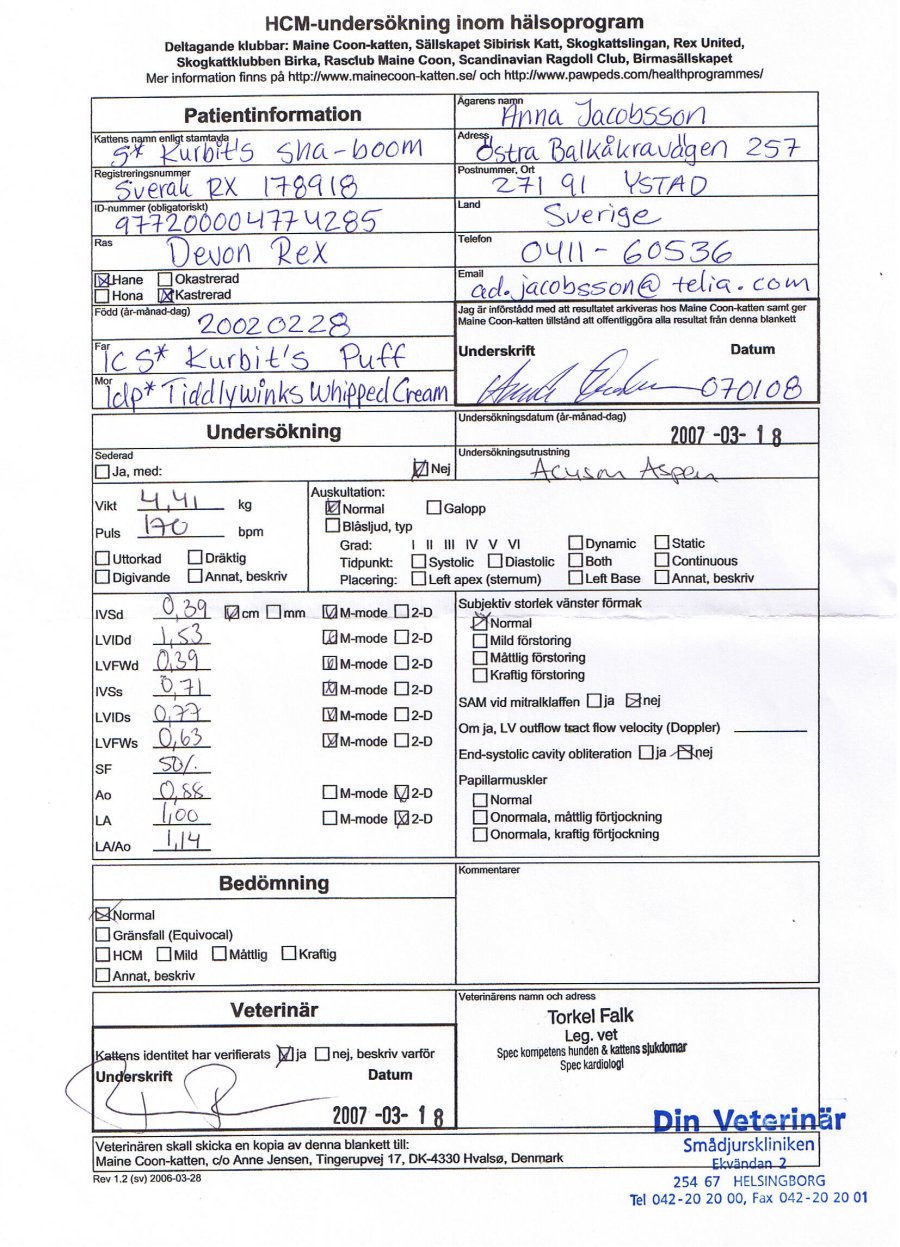 HCM-undersökning inom hälsoprogram
Deltagande klubbar: Maine Coon-katten, Sällskapet Sibirisk Katt, Skogkattslingan, Rex United,
Skogkattklubben Birka, Rasclub Maine Coon, Scandinavian Ragdoll Club, Birmasällskapet
Mer information finns på http://www.mainecoon-katten.se/ och http://www.pawpeds.com/healthprogrammes/
Patientinformation
Kattens namn enligt stamtavla
S* Kurbit's sha-boom
Registreringsnummer
Sverak RX 178918
ID-nummer (obligatoriskt)
977200004774285
Ras
Devon Rex
Hane Okastrerad
Hona Kastrerad
Född (år-månad-dag)
20020228
Far
IC S* Kurbit's Puff
Mor
Idp* Tiddlywinks Whipped Cream
Ägarens namn
Anna Jacobsson
Adress
Östra Balkåkravägen 257
Postnummer, Ort
271 91 YSTAD
Land
Sverige
Telefon
0411-60536
Email
ad.jacobsson@telia.com
Jag är införstådd med att resultatet arkiveras hos Maine Coon-katten samt ger
Maine Coon-katten tillstånd att offentliggöra alla resultat från denna blankett
Underskrift Datum
070108
Undersökning
Undersökningsdatum (år-månad-dag)
2007-03-18
Sederad
Ja, med: Nej
Undersökningsutrustning
Acuson Aspen
Vikt 4,41 kg
Puls 170 bpm
Uttorkad Dräktig
Digivande Annat, beskriv
Auskultation:
Normal Galopp
Blåsljud, typ
Grad: I II III IV V VI Dynamic Static
Tidpunkt: Systolic Diastolic Both Continuous
Placering: Left apex (sternum) Left Base Annat, beskriv
IVSd 0,39 cm mm M-mode 2-D
LVIDd 1,53 M-mode 2-D
LVFWd 0,39 M-mode 2-D
IVSs 0,71 M-mode 2-D
LVIDs 0,77 M-mode 2-D
LVFWs 0,63 M-mode 2-D
SF 50%
Ao 0,88 M-mode 2-D
LA 1,00 M-mode 2-D
LA/Ao 1,14
Subjektiv storlek vänster förmak
Normal
Mild förstoring
Måttlig förstoring
Kraftig förstoring
SAM vid mitralklaffen ja nej
Om ja, LV outflow tract flow velocity (Doppler)
End-systolic cavity obliteration ja nej
Papillarmuskler
Normal
Onormala, måttlig förtjockning
Onormala, kraftig förtjockning
Bedömning
Normal
Gränsfall (Equivocal)
HCM Mild Måttlig Kraftig
Annat, beskriv
Kommentarer
Veterinär
Kattens identitet har verifierats ja nej, beskriv varför
Underskrift Datum
2007-03-18
Veterinärens namn och adress
Torkel Falk
Leg. vet
Spec kompetens hunden & kattens sjukdomar
Spec kardiologi
Din Veterinär
Smådjurskliniken
Ekvändan 2
254 67 HELSINGBORG
Tel 042-20 20 00, Fax 042-20 20 01
Veterinären skall skicka en kopia av denna blankett till:
Maine Coon-katten, c/o Anne Jensen, Tingerupvej 17, DK-4330 Hvalsø, Denmark
Rev 1.2 (sv) 2006-03-28